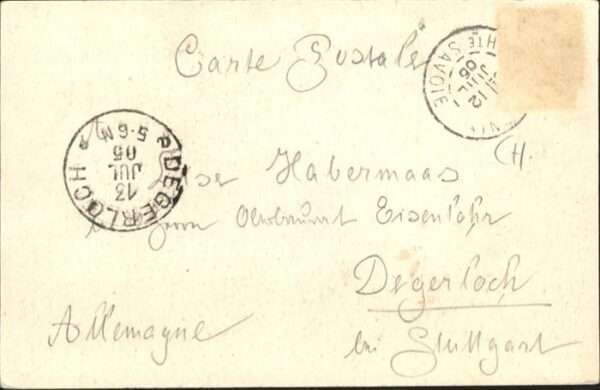 Carte Postale
HTE SAVOIE
12
JUIL
05
DEGERLOCH
13
JUL
05
5-6N
Habermaas
Herrn Oberbaurat Eisenlohr
Degerloch
bei Stuttgart
Allemagne